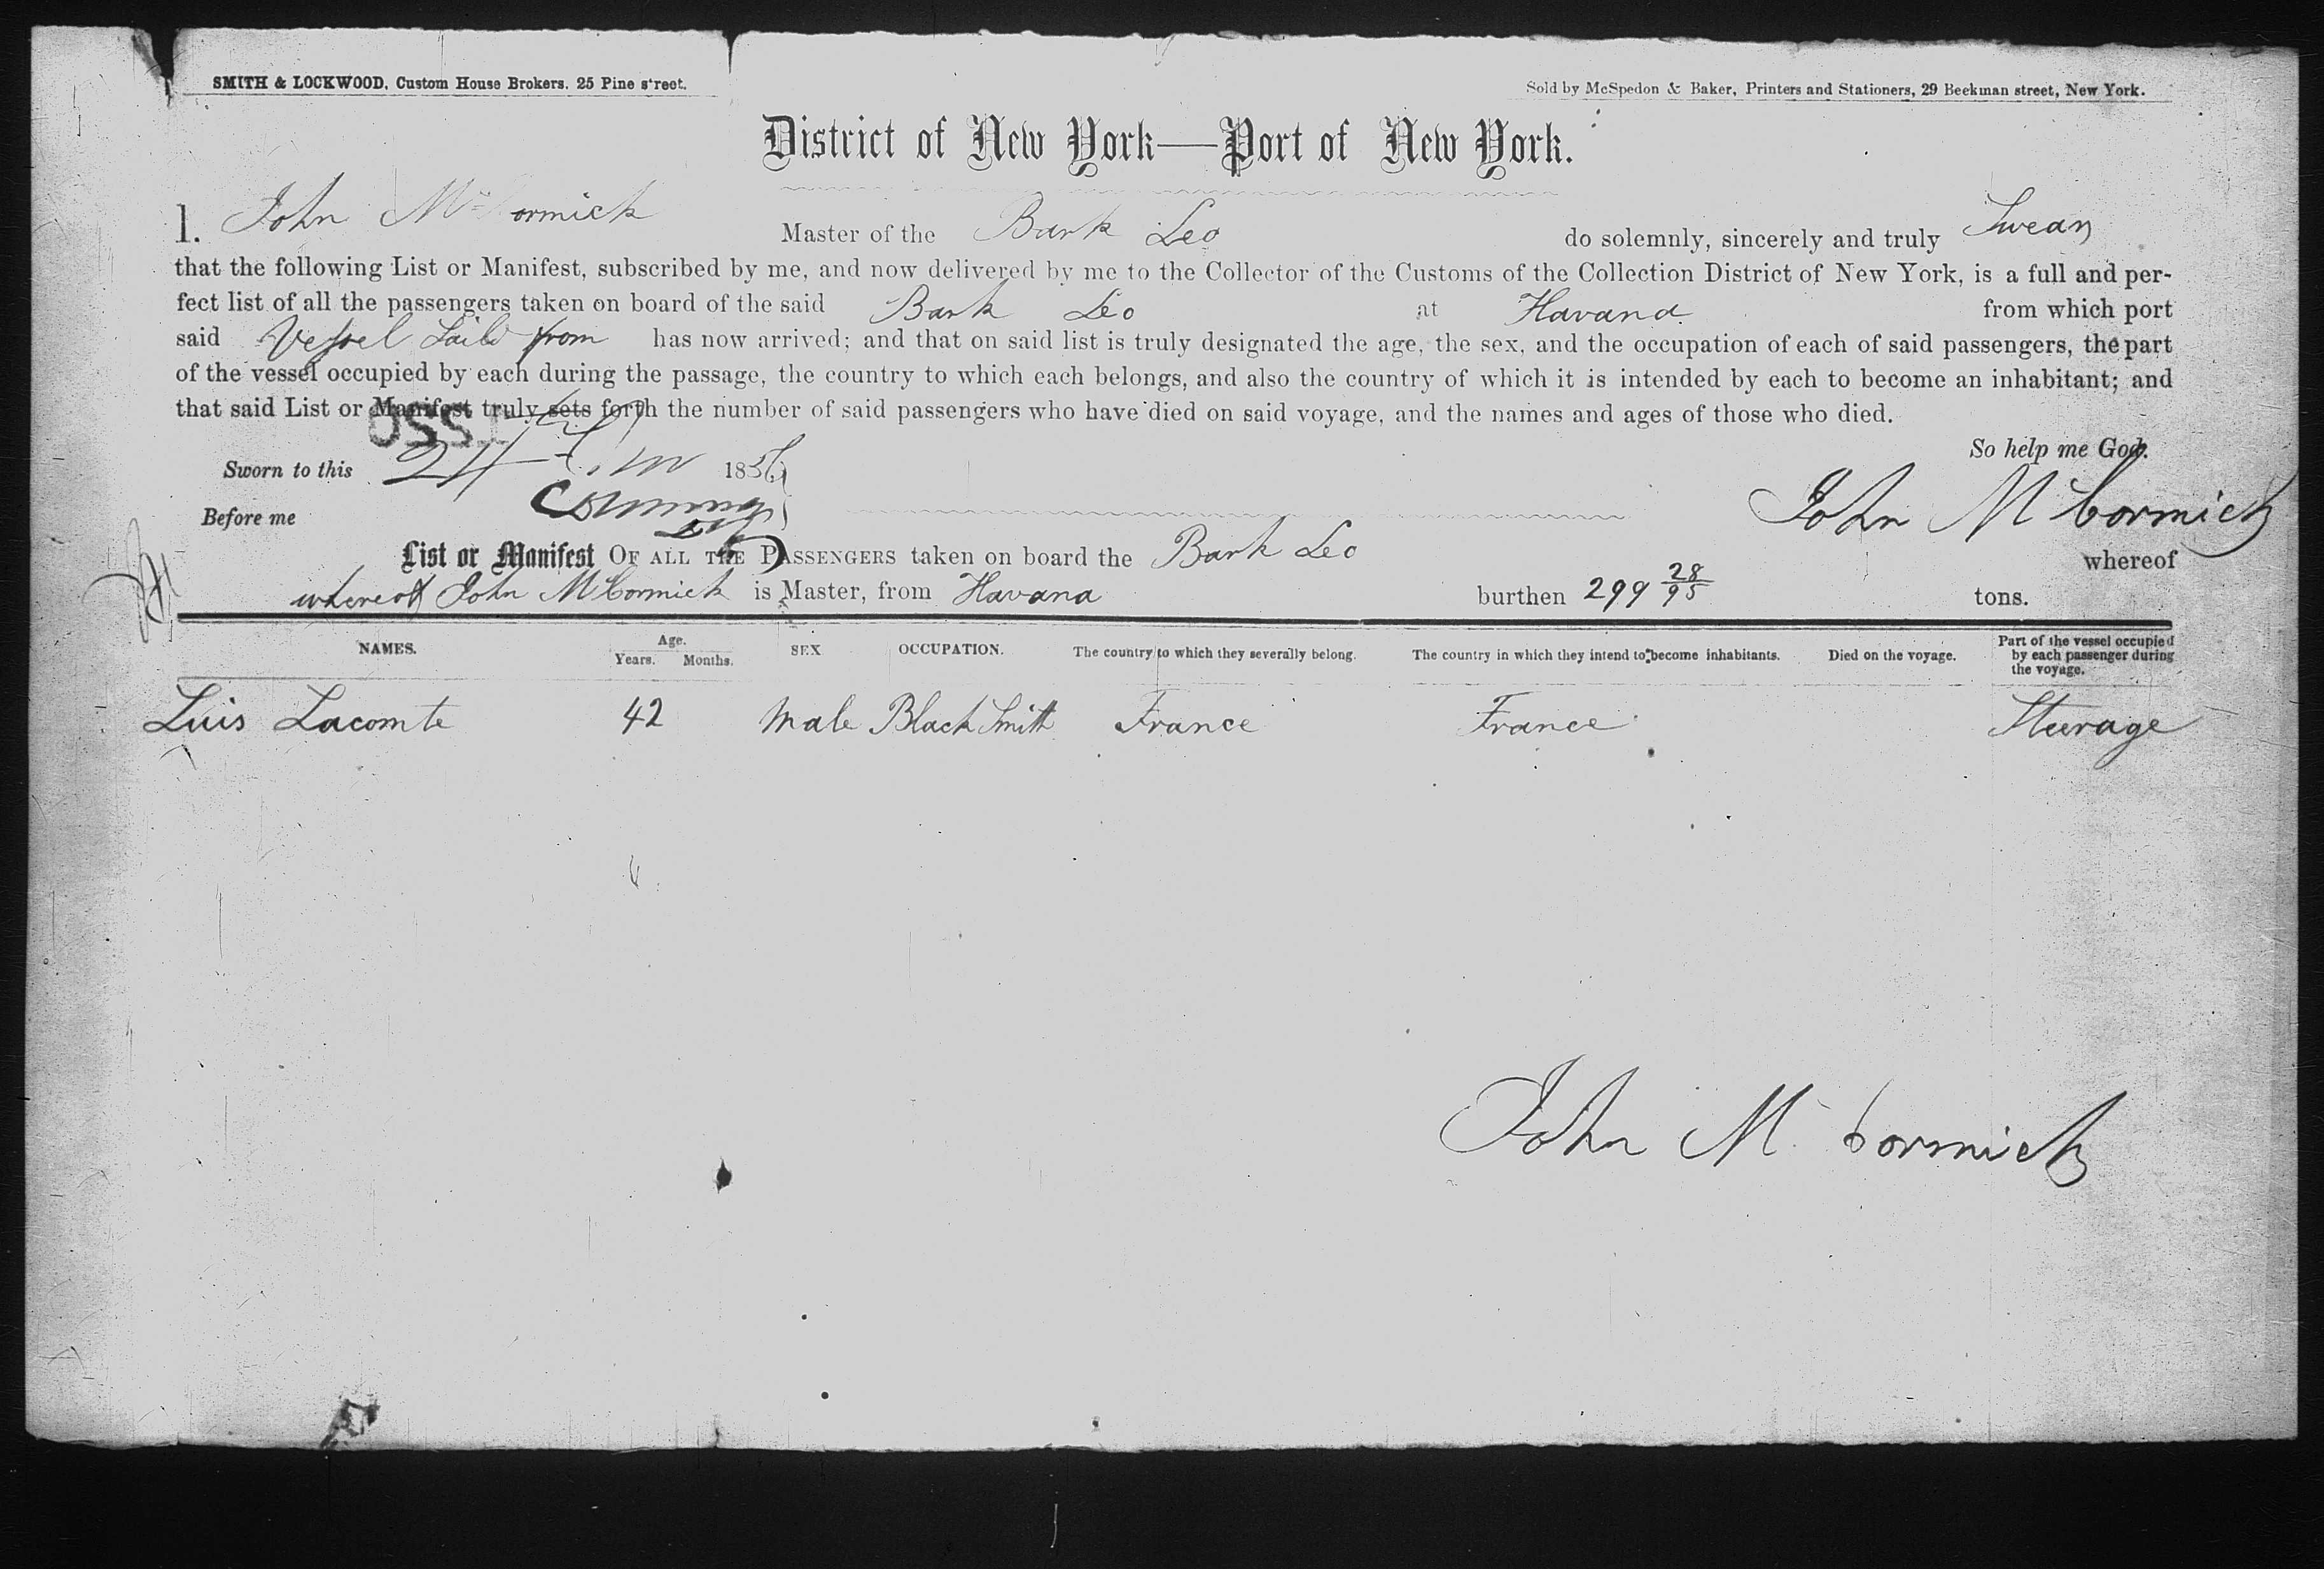 SMITH & LOCKWOOD, Custom House Brokers, 25 Pine street.
Sold by McSpedon & Baker, Printers and Stationers, 29 Beekman street, New York.
District of New York—Port of New York.
I. John McCormick Master of the Bark Leo do solemnly, sincerely and truly Swear
that the following List or Manifest, subscribed by me, and now delivered by me to the Collector of the Customs of the Collection District of New York, is a full and per-
fect list of all the passengers taken on board of the said Bark Leo at Havana from which port
said Vessel Saild from has now arrived; and that on said list is truly designated the age, the sex, and the occupation of each of said passengers, the part
of the vessel occupied by each during the passage, the country to which each belongs, and also the country of which it is intended by each to become an inhabitant; and
that said List or Manifest truly sets forth the number of said passengers who have died on said voyage, and the names and ages of those who died.
So help me God.
Sworn to this 24 1856
Before me John McCormick
List or Manifest OF ALL THE PASSENGERS taken on board the Bark Leo whereof
whereof John McCormick is Master, from Havana burthen 299 28/95 tons.
NAMES. Age. Years. Months. SEX OCCUPATION. The country to which they severally belong. The country in which they intend to become inhabitants. Died on the voyage. Part of the vessel occupied by each passenger during the voyage.
Luis Lacomte 42 Male Black Smith France France Steerage
John McCormick